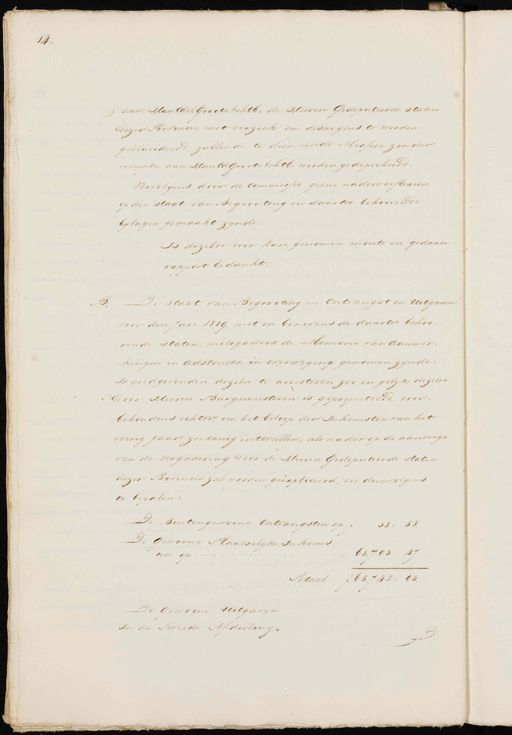 14.
aan Hun Ed. Groot Achtb. de Heeren Gedeputeerde Staten
dezer Provincie, met verzoek om desweegens te worden
zullende te dien einde
aan Hun Ed. Groot Achtb. worden
Vervolgens door de Commissie geene nadere
op den Staat van Begrooting en daartoe behoorende
bylagen gemaakt zynde,
Is dezelve voor haar genomen moeite en gedaan
rapport bedankt.
B. De Staat van Begrooting in Ontvangst en Uitgaven
voor den Jare 1819 met en benevens de daartoe behoo-
rende Staten, mitsgaders de Memorie van Aanmer-
kingen in overweging genomen zynde,
Is goedgevonden dezelve te arresteren zoo en gelyk dezelve
door Heeren Burgemeesteren is geproponeerd, voor-
behoudens echter, om het beloop der Inkomsten van het
vorig jaar zoodanig in te vullen, als nader op de aanvrage
van de vergadering door de Heeren Gedeputeerde Staten
dezer Provincie zal worden en diensvolgens
te bepalen;
De Buitengewone Ontvangsten op f 38: 58
De Gewone Plaatselyke Inkoms-
ten op 65,703: 47
Totaal f 65,742: 05
De Gewone Uitgaven
In de Eerste Afdeeling